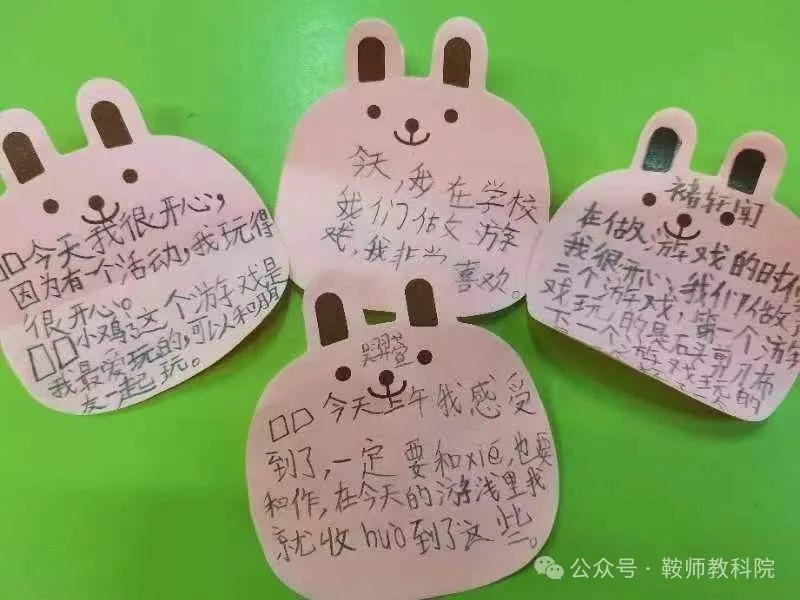 □□今天我很开心,
因为有一个活动,我玩得
很开心。
□□小鸡了这个游戏是
我最爱玩的,可以和朋
友一起玩。
今天,我在学校
我们做文游
戏,我非常
喜欢。
褚轩闻
在做游戏的时候
我很开心,我们做了
二个游戏,第一个游
戏玩的是石头剪刀布
下一个游戏玩的
□□今天上午我感受
到了,一定要和xié,也要
和作,在今天的游浅里我
就收huò到了这些。
公众号·鞍师教科院